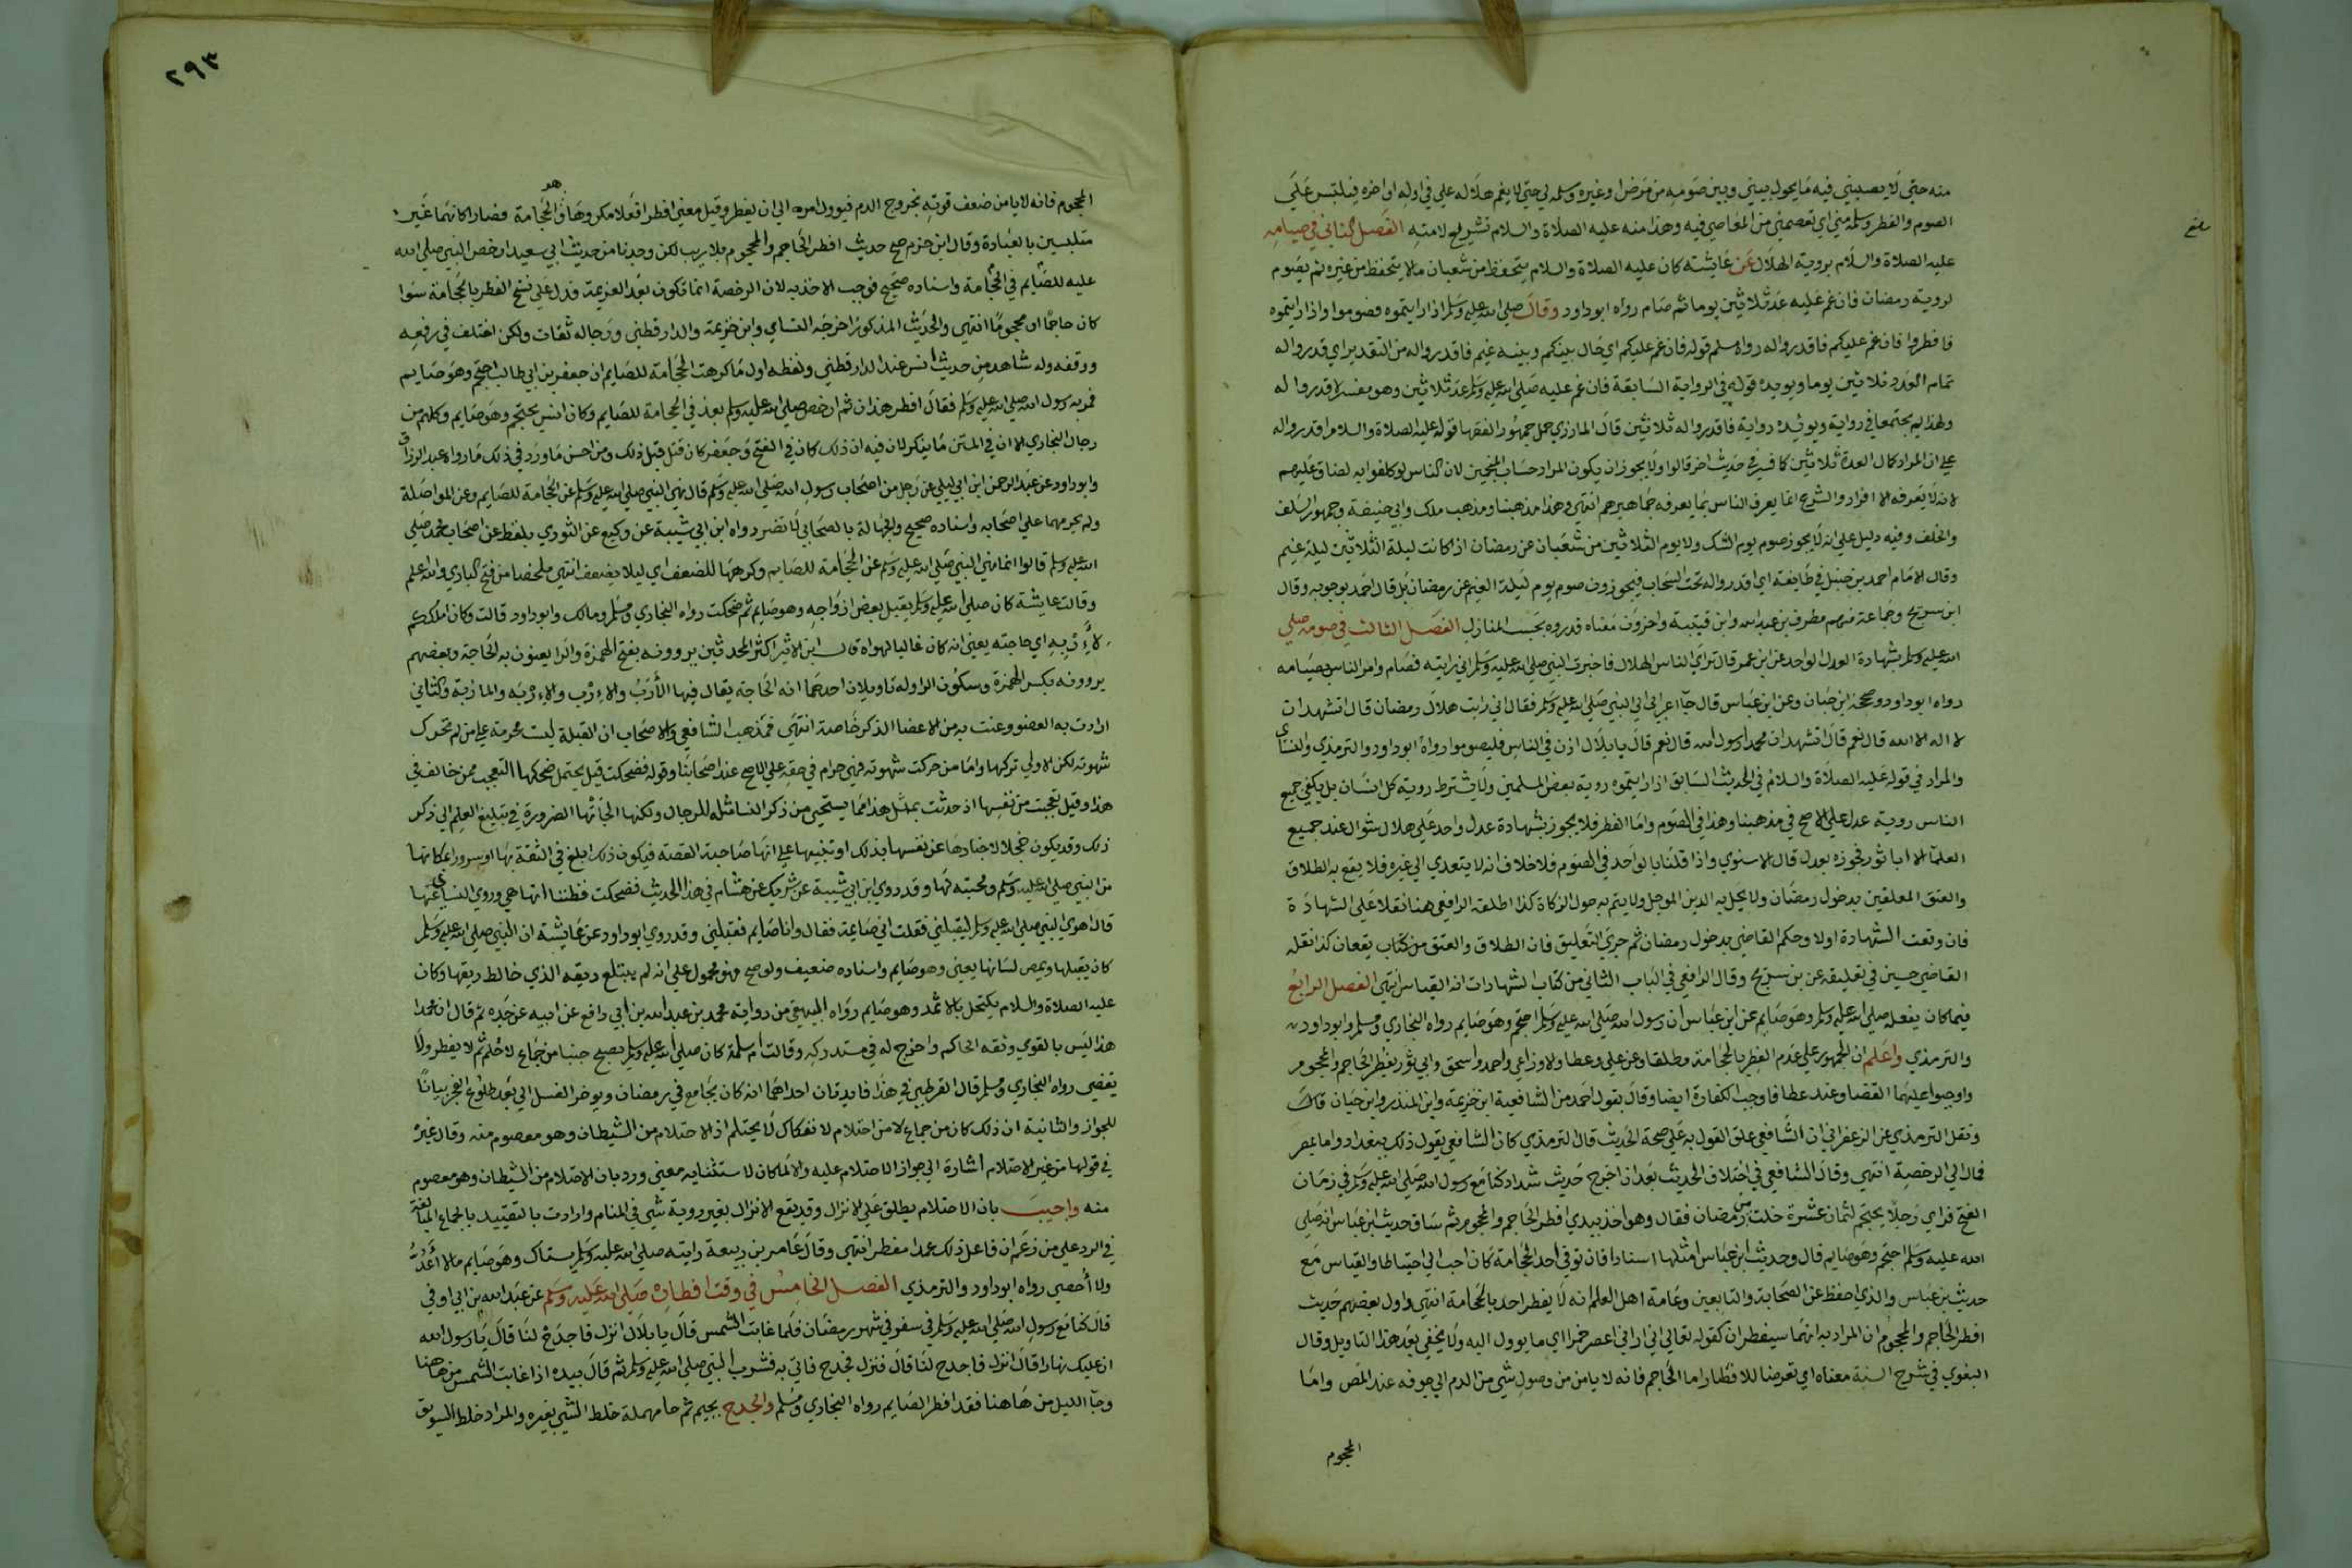 منه حتى لا يصيبني فيه ما يحول بيني وبين صومه من مرض او غيره وسلمه لي حتى لا يغم هلاله علي في اوله او اخره فيلتبس علي
الصوم والفطر وسلمه مني اي تعصمني من المعاصي فيه وهذا منه عليه الصلاة والسلام تشريع لامته الفصل الثاني في صيامه
عليه الصلاة والسلام بروية الهلال عن عايشة كان عليه الصلاة والسلام يتحفظ من شعبان ما لا يتحفظ من غيره ثم يصوم
لروية رمضان فان غم عليه عد ثلاثين يوما ثم صام رواه ابو داود وقال صلى الله عليه وسلم اذا رايتموه فصوموا واذا رايتموه
فافطروا فان غم عليكم فاقدروا له رواه مسلم قوله فان غم عليكم اي حال بينكم وبينه غيم فاقدروا له من التقدير اي قدروا له
تمام العدد ثلاثين يوما ويويده قوله في الرواية السابقة فان غم عليه صلى الله عليه وسلم عد ثلاثين وهو مفسر لاقدروا له
ولهذا لم يجتمعا في رواية ويويده رواية فاقدروا له ثلاثين قال المازري حمل جمهور الفقها قوله عليه الصلاة والسلام اقدروا له
على ان المراد كمال العدة ثلاثين كما فسره في حديث اخر قالوا ولا يجوز ان يكون المراد حساب المنجمين لان الناس لو كلفوا به لضاق عليهم
لانه لا يعرفه الا افراد والشرع انما يعرف الناس بما يعرفه جماهيرهم انتهى وهذا مذهبنا ومذهب ملك وابي حنيفة وجمهور السلف
والخلف وفيه دليل على انه لا يجوز صوم يوم الشك ولا يوم الثلاثين من شعبان عن رمضان اذا كانت ليلة الثلاثين ليلة غيم
وقال الامام احمد بن حنبل في طايفة اي اقدروا له تحت السحاب فيجوزون صوم يوم ليلة الغيم عن رمضان بل قال احمد بوجوبه وقال
ابن سريج وجماعة منهم مطرف بن عبد الله وابن قتيبة واخرون معناه قدروه بحسب المنازل الفصل الثالث في صومه صلى
الله عليه وسلم بشهادة العدل الواحد عن ابن عمر قال تراى الناس الهلال فاخبرت النبي صلى الله عليه وسلم اني رايته فصام وامر الناس بصيامه
رواه ابو داود وصححه ابن حبان وعن ابن عباس قال جآ اعرابي الى النبي صلى الله عليه وسلم فقال اني رايت هلال رمضان قال اتشهد ان
لا اله الا الله قال نعم قال اتشهد ان محمدا رسول الله قال نعم قال يا بلال اذن في الناس فليصوموا رواه ابو داود والترمذي والنساي
والمراد في قوله عليه الصلاة والسلام في الحديث السابق اذا رايتموه روية بعض المسلمين ولا يشترط روية كل انسان بل يكفي جميع
الناس روية عدل على الاصح في مذهبنا وهذا في الصوم واما الفطر فلا يجوز بشهادة عدل واحد على هلال شوال عند جميع
العلمآ الا ابا ثور فجوزه بعدل قال الاسنوي واذا قلنا بالواحد في الصوم فلا خلاف انه لا يتعدي الى غيره فلا يقع به الطلاق
والعتق المعلقين بدخول رمضان ولا يحل به الدين الموجل ولا يتم به حول الزكاة كذا اطلقه الرافعي هنا نقلا على الشهادة
فان وقعت الشهادة اولا وحكم القاضي بدخول رمضان ثم جرى التعليق فان الطلاق والعتق من كتاب يقعان كذا نقله
القاضي حسين في تعليقه عن بن سريج وقال الرافعي في الباب الثاني من كتاب الشهادات انه القياس انتهى الفصل الرابع
فيما كان يفعله صلى الله عليه وسلم وهو صايم عن ابن عباس ان رسول الله صلى الله عليه وسلم احتجم وهو صايم رواه البخاري ومسلم وابو داود
والترمذي واعلم ان الجمهور على عدم الفطر بالحجامة مطلقا وعن علي وعطا والاوزاعي واحمد واسحق وابي ثور يفطر الحاجم والمحجوم
واوجبوا عليهما القضا وعند عطا فاوجب الكفارة ايضا وقال بقول احمد من الشافعية ابن خزيمة وابن المنذر وابن حبان قال
ونقل الترمذي عن الزعفراني ان الشافعي علق القول به على صحة الحديث قال الترمذي كان الشافعي يقول ذلك ببغداد واما بمصر
فمال الى الرخصة انتهى وقال الشافعي في اختلاف الحديث بعد ان اخرج حديث شداد كنا مع رسول الله صلى الله عليه وسلم في زمان
الفتح فراي رجلا يحتجم لثمان عشرة خلت من رمضان فقال وهو اخذ بيدي افطر الحاجم والمحجوم ثم ساق حديث ابن عباس انه صلى
الله عليه وسلم احتجم وهو صايم قال وحديث ابن عباس امثلهما اسنادا فان توقي احد الحجامة كان احب الي احتياطا والقياس مع
حديث بن عباس والذي احفظ عن الصحابة والتابعين وعامة اهل العلم انه لا يفطر احد بالحجامة انتهى واول بعضهم حديث
افطر الحاجم والمحجوم ان المراد به انهما سيفطران كقوله تعالى اني اراني اعصر خمرا اي ما يوول اليه ولا يخفى بعد هذا التاويل وقال
البغوي في شرح السنة معناه اي تعرضا للافطار اما الحاجم فانه لا يامن من وصول شي من الدم الى جوفه عند المص واما
المحجوم
بلغ
٢٩٣
المحجوم فانه لا يامن ضعف قوته بخروج الدم فيوول امره الى ان يفطر وقيل معنى افطر افعلا مكروها وهو الحجامة فصارا كانهما غير
متلبسين بالعبادة وقال ابن حزم صح حديث افطر الحاجم والمحجوم بلا ريب لكن وجدنا من حديث ابي سعيد ارخص النبي صلى الله
عليه للصايم في الحجامة واسناده صحيح فوجب الاخذ به لان الرخصة انما تكون بعد العزيمة فدل على نسخ الفطر بالحجامة سوا
كان حاجما او محجوما انتهى والحديث المذكور اخرجه النساي وابن خزيمة والدارقطني ورجاله ثقات ولكن اختلف في رفعه
ووقفه وله شاهد من حديث انس عند الدارقطني ولفظه اول ما كرهت الحجامة للصايم ان جعفر بن ابي طالب احتجم وهو صايم
فمر به رسول الله صلى الله عليه وسلم فقال افطر هذان ثم ارخص صلى الله عليه وسلم بعد في الحجامة للصايم وكان انس يحتجم وهو صايم وكلهم من
رجال البخاري الا ان في المتن ما ينكر لان فيه ان ذلك كان في الفتح وجعفر كان قتل قبل ذلك ومن احسن ما ورد في ذلك ما رواه عبد الرزاق
وابو داود عن عبد الرحمن ابن ابي ليلى عن رجل من اصحاب رسول الله صلى الله عليه وسلم قال نهى النبي صلى الله عليه وسلم عن الحجامة للصايم وعن المواصلة
ولم يحرمهما على اصحابه واسناده صحيح والجهالة بالصحابي لا تضر رواه ابن ابي شيبة عن وكيع عن الثوري بلفظ عن اصحاب محمد صلى
الله عليه وسلم قالوا انما نهى النبي صلى الله عليه وسلم عن الحجامة للصايم وكرهها للضعف اي ليلا يضعف انتهى ملخصا من فتح الباري والله اعلم
وقالت عايشة كان صلى الله عليه وسلم يقبل بعض ازواجه وهو صايم ثم ضحكت رواه البخاري ومسلم ومالك وابو داود قالت وكان املككم
لأربه اي حاجته يعني انه كان غالبا لهواه قال ابن الاثير اكثر المحدثين يروونه بفتح الهمزة والرا يعنون به الحاجة وبعضهم
يروونه بكسر الهمزة وسكون الرا وله تاويلان احدهما انه الحاجة يقال فيها الأرب والارب والاربة والماربة والثاني
ارادت به العضو وعنت به من الاعضا الذكر خاصة انتهى فمذهب الشافعي والاصحاب ان القبلة ليست محرمة على من لم تحرك
شهوته لكن الاولى تركها واما من حركت شهوته فهي حرام في حقه على الاصح عند اصحابنا وقوله فضحكت قيل يحتمل ضحكها التعجب ممن خالف في
هذا وقيل تعجبت من نفسها اذ حدثت بمثل هذا مما يستحيى من ذكر النسا مثله للرجال ولكنها الجأتها الضرورة في تبليغ العلم الى ذكر
ذلك وقد يكون خجلا لاخبارها عن نفسها بذلك او تنبيها على انها صاحبة القصة فيكون ذلك ابلغ في الثقة بها او سرورا بمكانها
من النبي صلى الله عليه وسلم ومحبته لها وقد روى ابن ابي شيبة عن شريك عن هشام في هذا الحديث فضحكت فظننا انها هي وروى النساي عنها
قال اهوى النبي صلى الله عليه وسلم ليقبلني فقلت اني صايمة فقال وانا صايم فقبلني وقد روى ابو داود عن عايشة ان النبي صلى الله عليه وسلم
كان يقبلها ويمص لسانها يعني وهو صايم واسناده ضعيف ولو صح فهو محمول على انه لم يبتلع ريقه الذي خالط ريقها وكان
عليه الصلاة والسلام يكتحل بالاثمد وهو صايم رواه البيهقي من رواية محمد بن عبد الله بن ابي رافع عن ابيه عن جده ثم قال ان محمدا
هذا ليس بالقوي وثقه الحاكم واخرج له في مستدركه وقالت ام سلمة كان صلى الله عليه وسلم يصبح جنبا من جماع لا حلم ثم لا يفطر ولا
يقضي رواه البخاري ومسلم قال القرطبي في هذا فايدتان احداهما انه كان يجامع في رمضان ويوخر الغسل الى بعد طلوع الفجر بيانا
للجواز والثانية ان ذلك كان من جماع لا من احتلام لانه كان لا يحتلم اذ الاحتلام من الشيطان وهو معصوم منه وقال غيره
في قولها من غير الاحتلام اشارة الى جواز الاحتلام عليه والا لما كان للاستثنا معنى ورد بان الاحتلام من الشيطان وهو معصوم
منه واجيب بان الاحتلام يطلق على الانزال وقد يقع الانزال بغير روية شي في المنام وارادت بالتقييد بالجماع المبالغة
في الرد على من زعم ان فاعل ذلك عمدا مفطر انتهى وقال عامر بن ربيعة رايته صلى الله عليه وسلم يستاك وهو صايم مالا أعد
ولا أحصي رواه ابو داود والترمذي الفصل الخامس في وقت افطاره صلى الله عليه وسلم عن عبد الله بن ابي اوفى
قال كنا مع رسول الله صلى الله عليه وسلم في سفر في شهر رمضان فلما غابت الشمس قال يا بلال انزل فاجدح لنا قال يا رسول الله
ان عليك نهارا قال انزل فاجدح لنا قال فنزل فجدح فاتي به فشرب النبي صلى الله عليه وسلم ثم قال بيده اذا غابت الشمس من هاهنا
وجآ الليل من هاهنا فقد افطر الصايم رواه البخاري ومسلم والجدح بجيم ثم حا مهملة خلط الشي بغيره والمراد خلط السويق